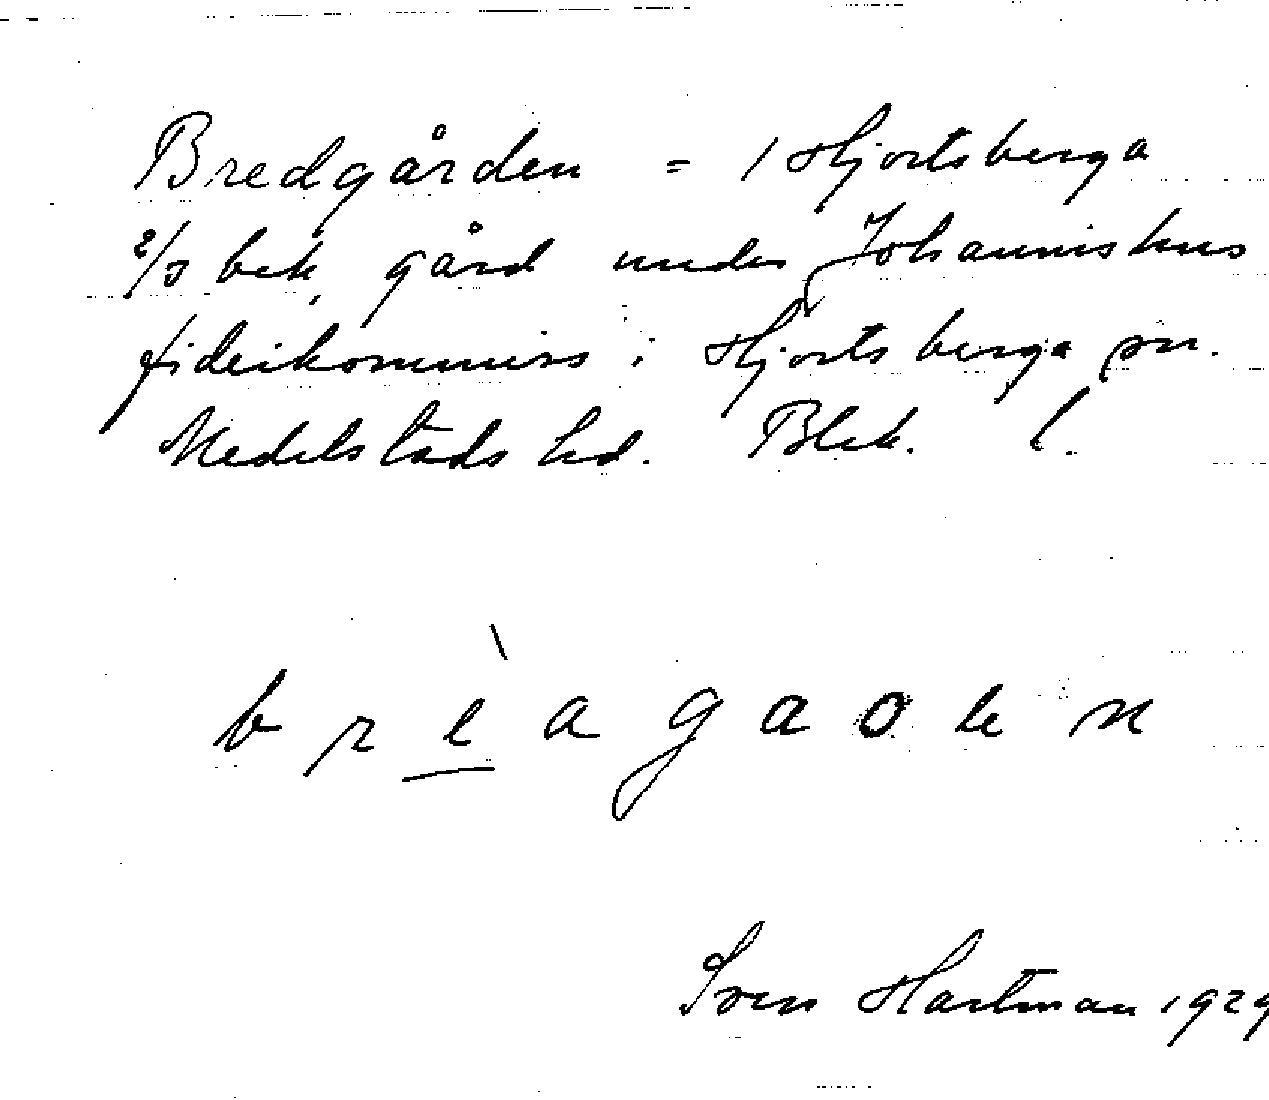 Bredgården = 1 Hjortsberga
2/3 bek. gård under Johannishus
fideikommiss i Hjortsberga sn.
Medelstads hd. Blek. l.
Sven Hartman 1929